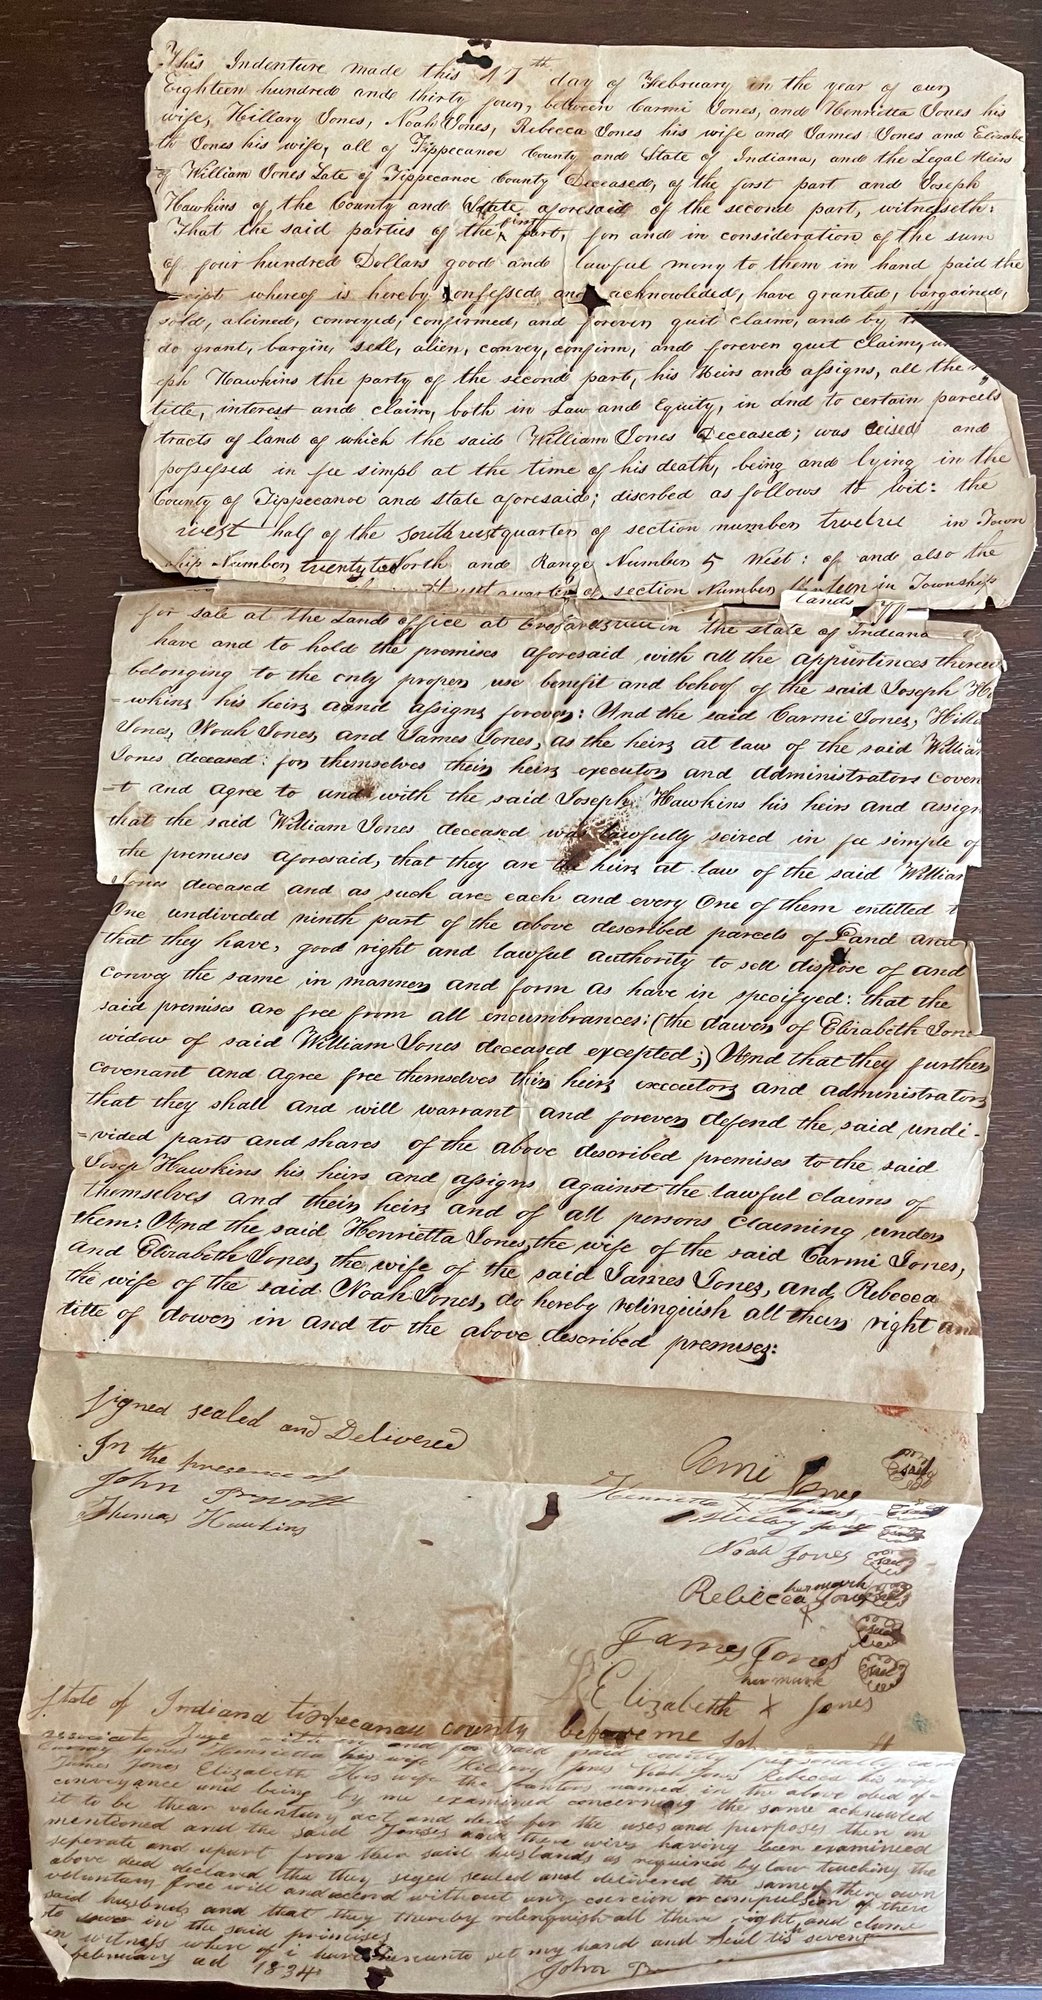 This Indenture made this 17th day of February in the year of our
Eighteen hundred and thirty four, between Carmi Jones, and Henrietta Jones his
wife, Hillary Jones, Noah Jones, Rebecca Jones his wife and James Jones and Elizabe
th Jones his wife, all of Tippecanoe County and State of Indiana, and the Legal Heirs
of William Jones Late of Tippecanoe County Deceased, of the first part and Joseph
Hawkins of the County and State aforesaid of the second part, witnesseth:
That the said parties of the first part, for and in consideration of the sum
of four hundred Dollars good and lawful mony to them in hand paid the
receipt whereof is hereby confessed and acknowleded, have granted, bargained,
sold, aliened, conveyed, confirmed, and forever quit claim, and by
do grant, bargin, sell, alien, convey, confirm, and forever quit claim,
eph Hawkins the party of the second part, his Heirs and assigns, all the
title, interest and claim, both in Law and Equity, in and to certain parcels
tracts of land of which the said William Jones Deceased; was seised and
possessed in fee simpl at the time of his death, being and lying in the
County of Tippecanoe and state aforesaid; discribed as follows to wit: the
west half of the southwest quarter of section number twelve in Town
ship Number twenty two North and Range Number 5 West: of and also the
quarter of section Number in Township
lands
for sale at the Land office at in the state of Indiana
have and to hold the premises aforesaid with all the appurtinces thereun
belonging to the only proper use benefit and behoof of the said Joseph Ha
=wkins his heirs aand assigns forever: And the said Carmi Jones, Hilla
Jones, Noah Jones, and James Jones, as the heirs at law of the said William
Jones deceased: for themselves their heirs executors and administrators coven
=t and agree to and with the said Joseph Hawkins his heirs and assign
that the said William Jones deceased was lawfully seized in fee simple of
the premises aforesaid, that they are the heirs at law of the said William
Jones deceased and as such are each and every One of them entitled t
One undivided ninth part of the above described parcels of Land and
that they have, good right and lawful authority to sell dispose of and
convey the same in manner and form as have in specifyed: that the
said premises are free from all encumbrances: (the dower of Elizabeth Jone
widow of said William Jones deceased excepted;) And that they further
covenant and agree free themselves their heirs executors and administrators
that they shall and will warrant and forever defend the said undi-
=vided parts and shares of the above described premises to the said
Josep Hawkins his heirs and assigns against the lawful claims of
themselves and their heirs and of all persons claiming under
them: And the said Henrietta Jones, the wife of the said Carmi Jones,
and Elizabeth Jones, the wife of the said James Jones, and Rebecca
the wife of the said Noah Jones, do hereby relinquish all their right and
title of dower in and to the above described premises:
signed sealed and Delivered
In the presence of
John
Thomas Hawkins
Jones seal
Henrietta X Jones
Hillary Jones seal
Noah Jones seal
her mark
Rebecca X Jones
James Jones seal
her mark
Elizabeth X Jones seal
State of Indiana tippecanau county before me
with in and for said county personally
Jones Henrietta his wife Hillery Jones Noah Jones Rebeca his wife
James Jones Elizabeth His wife the grantors named in the above deed of
conveyance and being by me examined concerning the same acknowled
it to be thear voluntary act and deed for the uses and purposes there in
mentioned and the said Joneses and there wives having been examineed
seperate and apart from their said husbands as required by law touching the
above deed declared tha they siged sealed and delivered the same of there own
voluntary free will and accord without any coercion or compulsion of there
said husbands and that they thereby relinguish all there right and clame
to dower in the said primises
in witness where of i have hereunto set my hand and seal tis sevent
february ad 1834
John